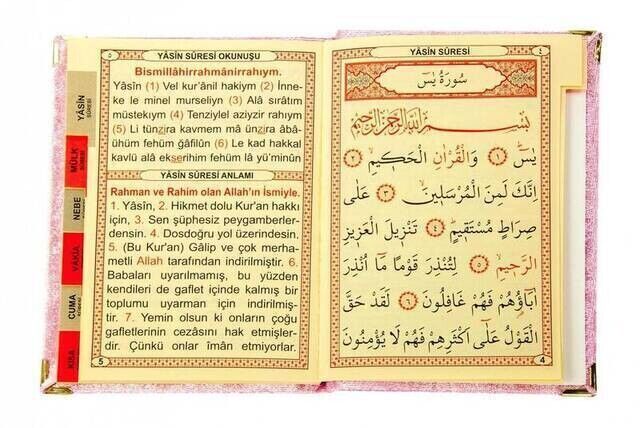 ٥
YÂSİN SÛRESİ OKUNUŞU
Bismillâhirrahmânirrahıym.
Yâsîn (1) Vel kur'ânil hakiym (2) İnne-
ke le minel murseliyn (3) Alâ sırâtım
müstekıym (4) Tenziylel aziyzir rahıym
(5) Li tünzira kavmem mâ ünzira âbâ-
ühüm fehüm ğafilûn (6) Le kad hakkal
kavlü alâ ekserihim fehüm lâ yü'minûn
YÂSİN SÛRESİ ANLAMI
Rahman ve Rahim olan Allah'ın İsmiyle.
1. Yâsîn, 2. Hikmet dolu Kur'an hakkı
için, 3. Sen şüphesiz peygamberler-
densin. 4. Dosdoğru yol üzerindesin.
5. (Bu Kur'an) Gâlip ve çok merha-
metli Allah tarafından indirilmiştir. 6.
Babaları uyarılmamış, bu yüzden
kendileri de gaflet içinde kalmış bir
toplumu uyarman için indirilmiş-
tir. 7. Yemin olsun ki onların çoğu
gafletlerinin cezasını hak etmişler-
dir. Çünkü onlar îmân etmiyorlar.
5
YÂSİN SÛRESİ
MÜLK SÛRESİ
NEBE
VAKIA
CUMA
KISA
YÂSİN SÛRESİ
٤
سُورَةُ يٰسٓ
بِسْمِ اللّٰهِ الرَّحْمٰنِ الرَّحِيمِ
يٰسٓ ﴿١﴾ وَالْقُرْاٰنِ الْحَكِيمِ ﴿٢﴾
اِنَّكَ لَمِنَ الْمُرْسَلِينَ ﴿٣﴾ عَلٰى
صِرَاطٍ مُسْتَقِيمٍ ﴿٤﴾ تَنْزِيلَ الْعَزِيزِ
الرَّحِيمِ ﴿٥﴾ لِتُنْذِرَ قَوْمًا مَٓا اُنْذِرَ
اٰبَٓاؤُهُمْ فَهُمْ غَافِلُونَ ﴿٦﴾ لَقَدْ حَقَّ
الْقَوْلُ عَلٰٓى اَكْثَرِهِمْ فَهُمْ لَا يُؤْمِنُونَ
4